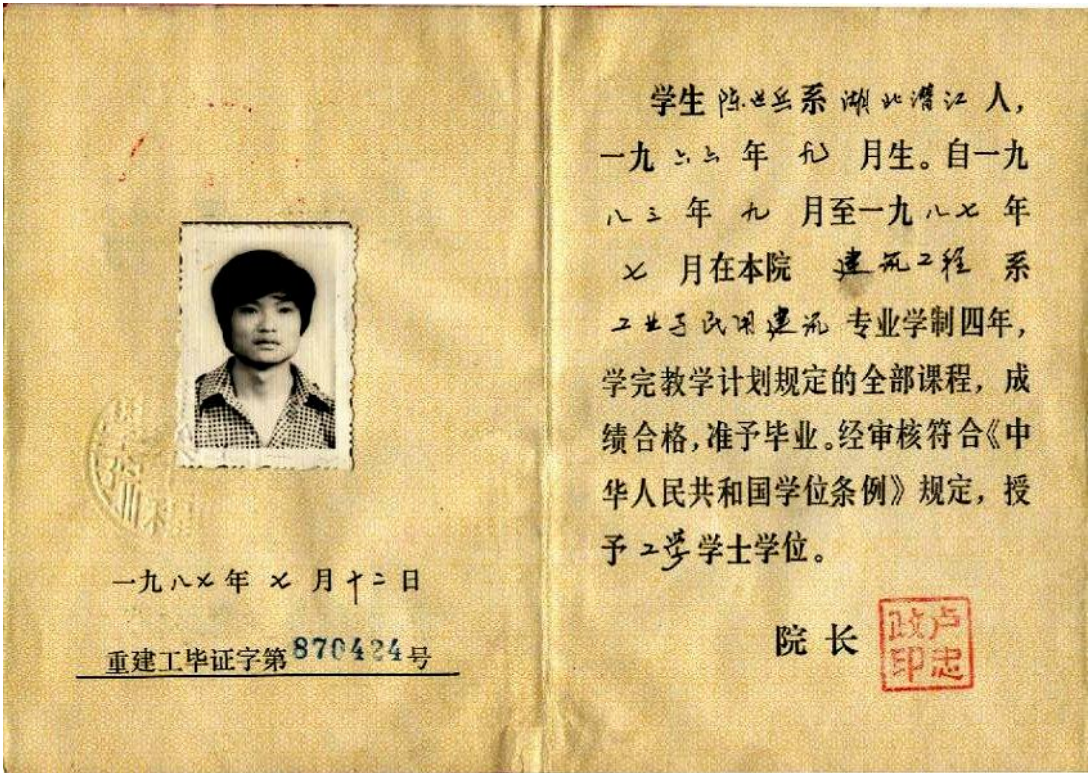 一九八七年七月十二日
重建工毕证字第870424号
学生陈世岳系湖北潜江人，
一九六六年九月生。自一九
八三年九月至一九八七年
七月在本院 建筑工程 系
工业与民用建筑专业学制四年，
学完教学计划规定的全部课程，成
绩合格，准予毕业。经审核符合《中
华人民共和国学位条例》规定，授
予工学学士学位。
院长
卢忠政印